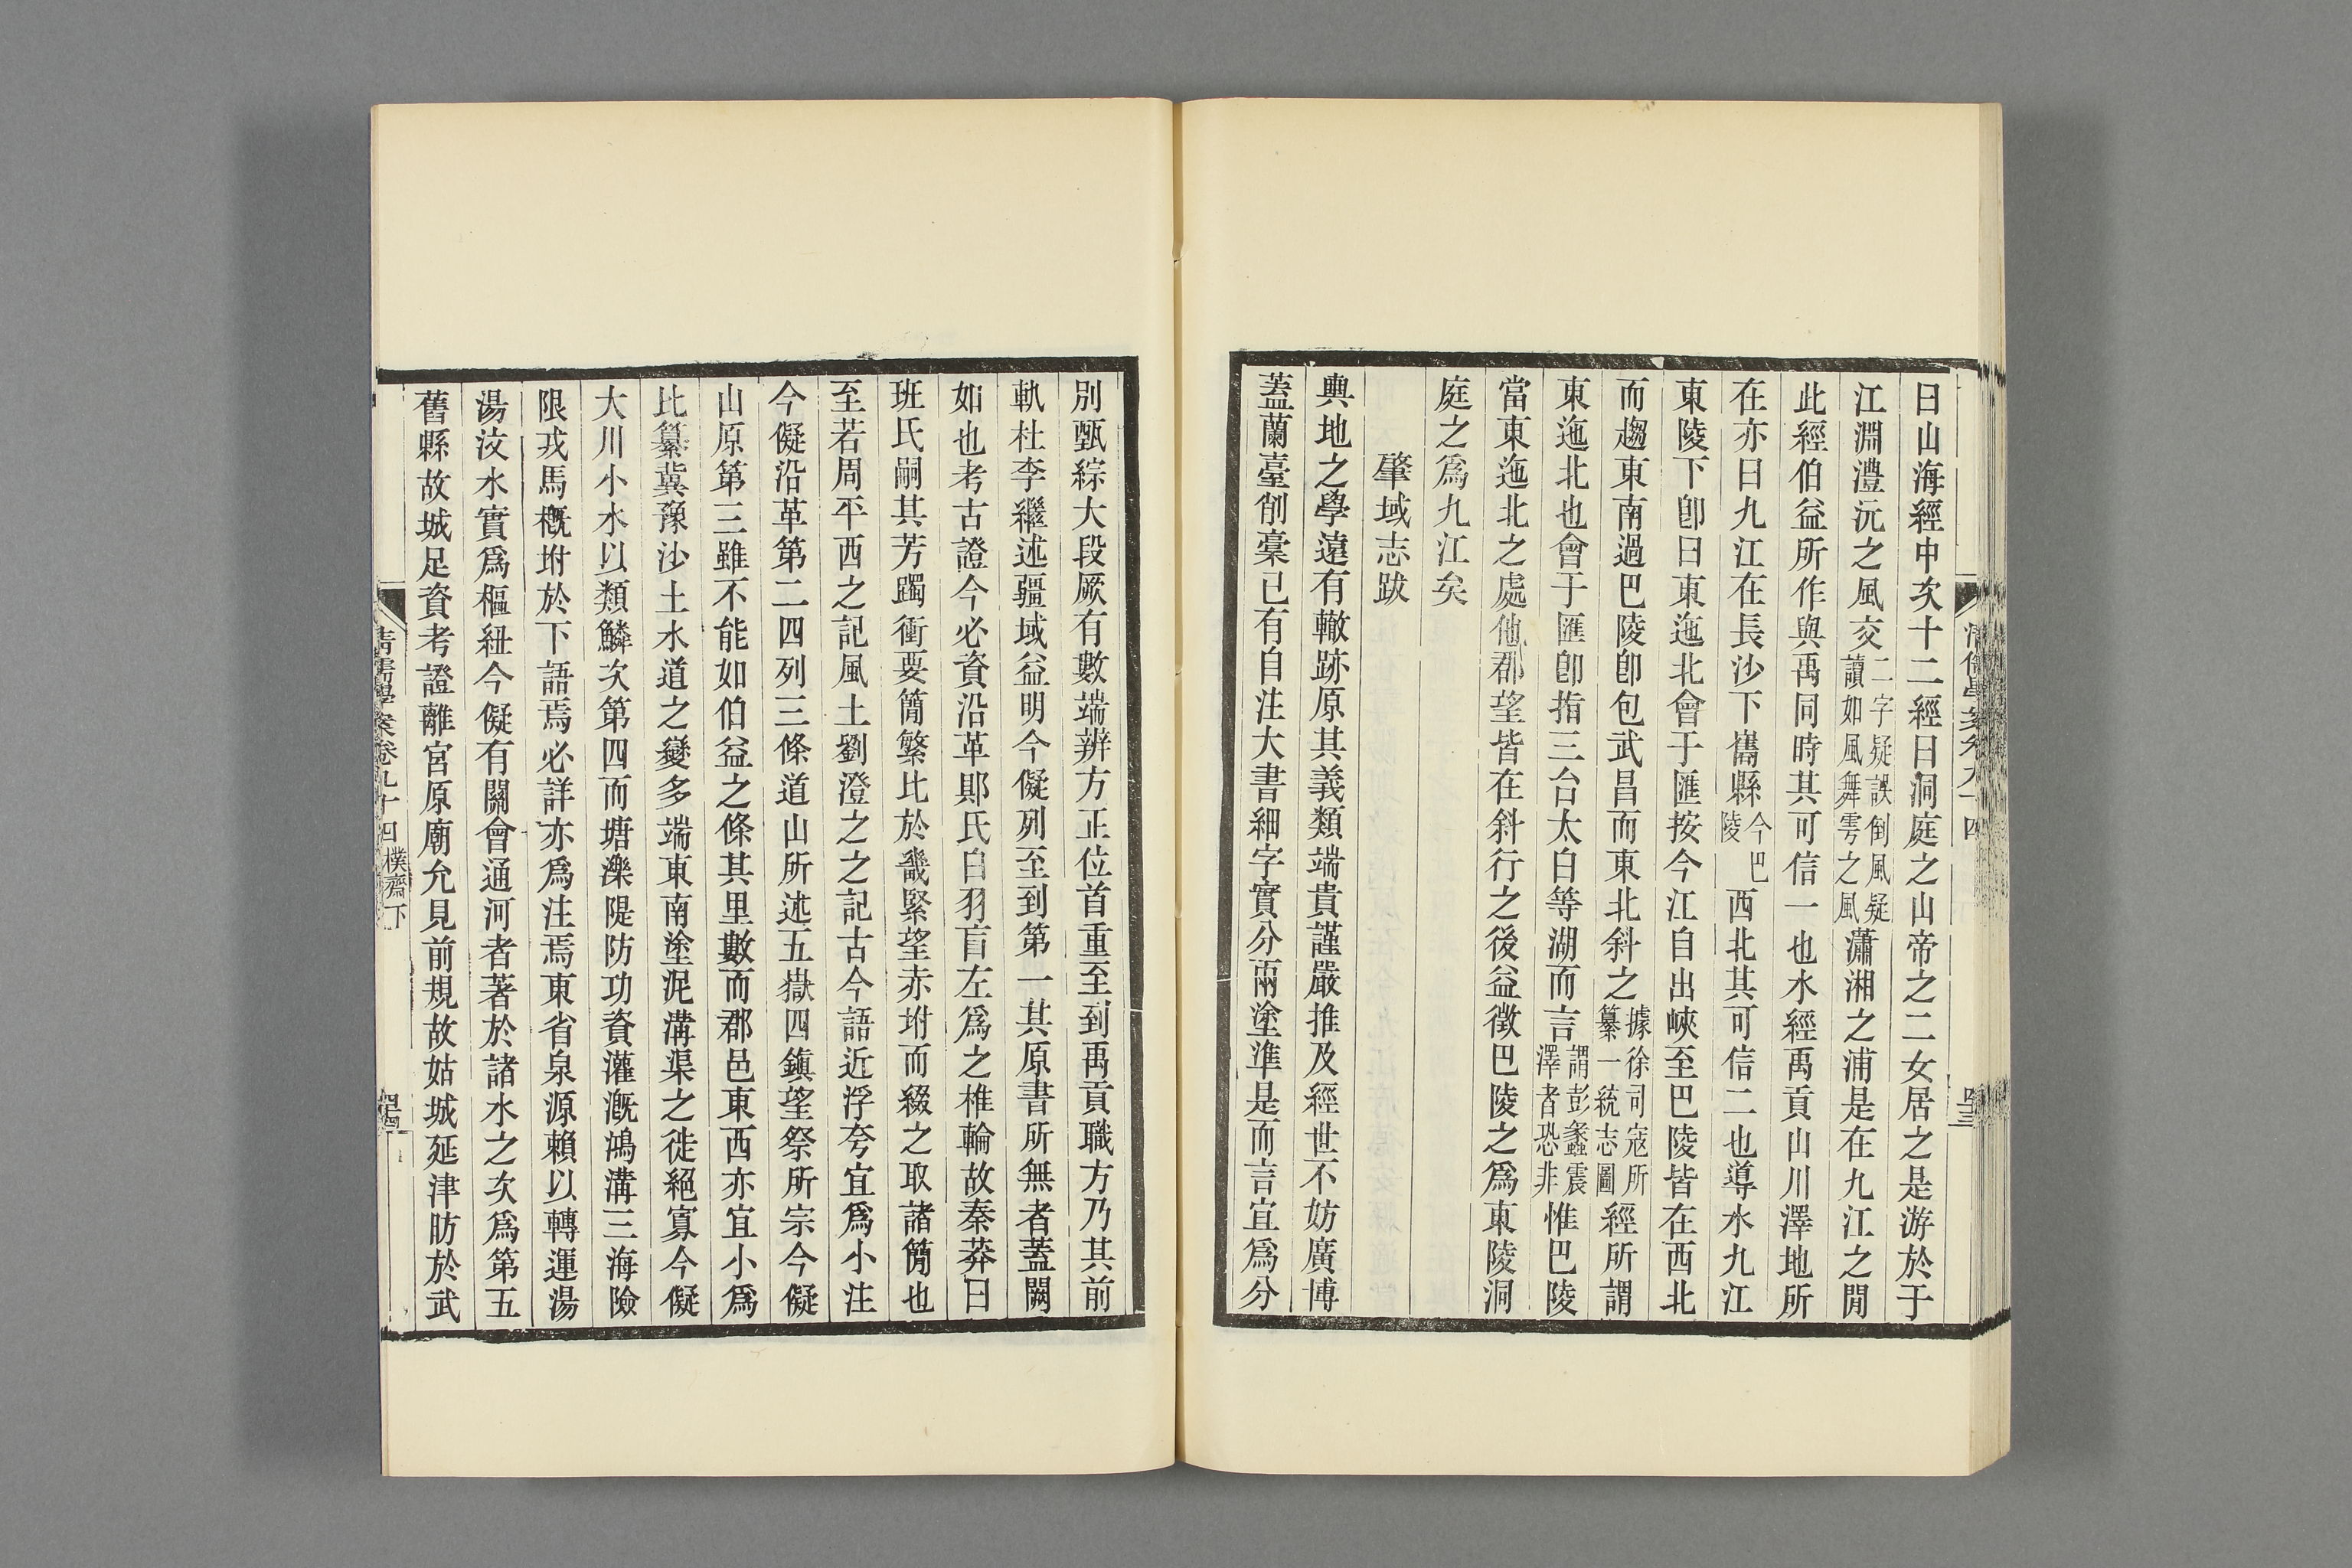 曰山海經中次十二經曰洞庭之山帝之二女居之是游於于
江淵澧沅之風交二字疑誤倒風疑讀如風舞雩之風瀟湘之浦是在九江之閒
此經伯益所作與禹同時其可信一也水經禹貢山川澤地所
在亦曰九江在長沙下雋縣今巴陵西北其可信二也導水九江
東陵下卽曰東迤北會于匯按今江自出峽至巴陵皆在西北
而趨東南過巴陵卽包武昌而東北斜之據徐司寇所纂一統志圖經所謂
東迤北也會于匯卽指三台太白等湖而言謂彭蠡震澤者恐非惟巴陵
當東迤北之處他郡望皆在斜行之後益徵巴陵之爲東陵洞
庭之爲九江矣
肇域志跋
輿地之學遠有轍跡原其義類端貴謹嚴推及經世不妨廣博
蓋蘭臺削稾已有自注大書細字實分兩塗準是而言宜爲分
別甄綜大段厥有數端辨方正位首重至到禹貢職方乃其前
軌杜李繼述疆域益明今儗列至到第一其原書所無者蓋闕
如也考古證今必資沿革郥氏白羽盲左爲之椎輪故秦莽曰
班氏嗣其芳躅衝要簡繁比於畿緊望赤坿而綴之取諸簡也
至若周平西之記風土劉澄之之記古今語近浮夸宜爲小注
今儗沿革第二四列三條道山所述五嶽四鎮望祭所宗今儗
山原第三雖不能如伯益之條其里數而郡邑東西亦宜小爲
比纂冀豫沙土水道之變多端東南塗泥溝渠之徙絕寡今儗
大川小水以類鱗次第四而塘濼隄防功資灌漑鴻溝三海險
限戎馬槪坿於下語焉必詳亦爲注焉東省泉源賴以轉運湯
湯汶水實爲樞紐今儗有關會通河者著於諸水之次爲第五
舊縣故城足資考證離宮原廟允見前規故姑城延津昉於武
清儒學案卷九十四 樸齋下